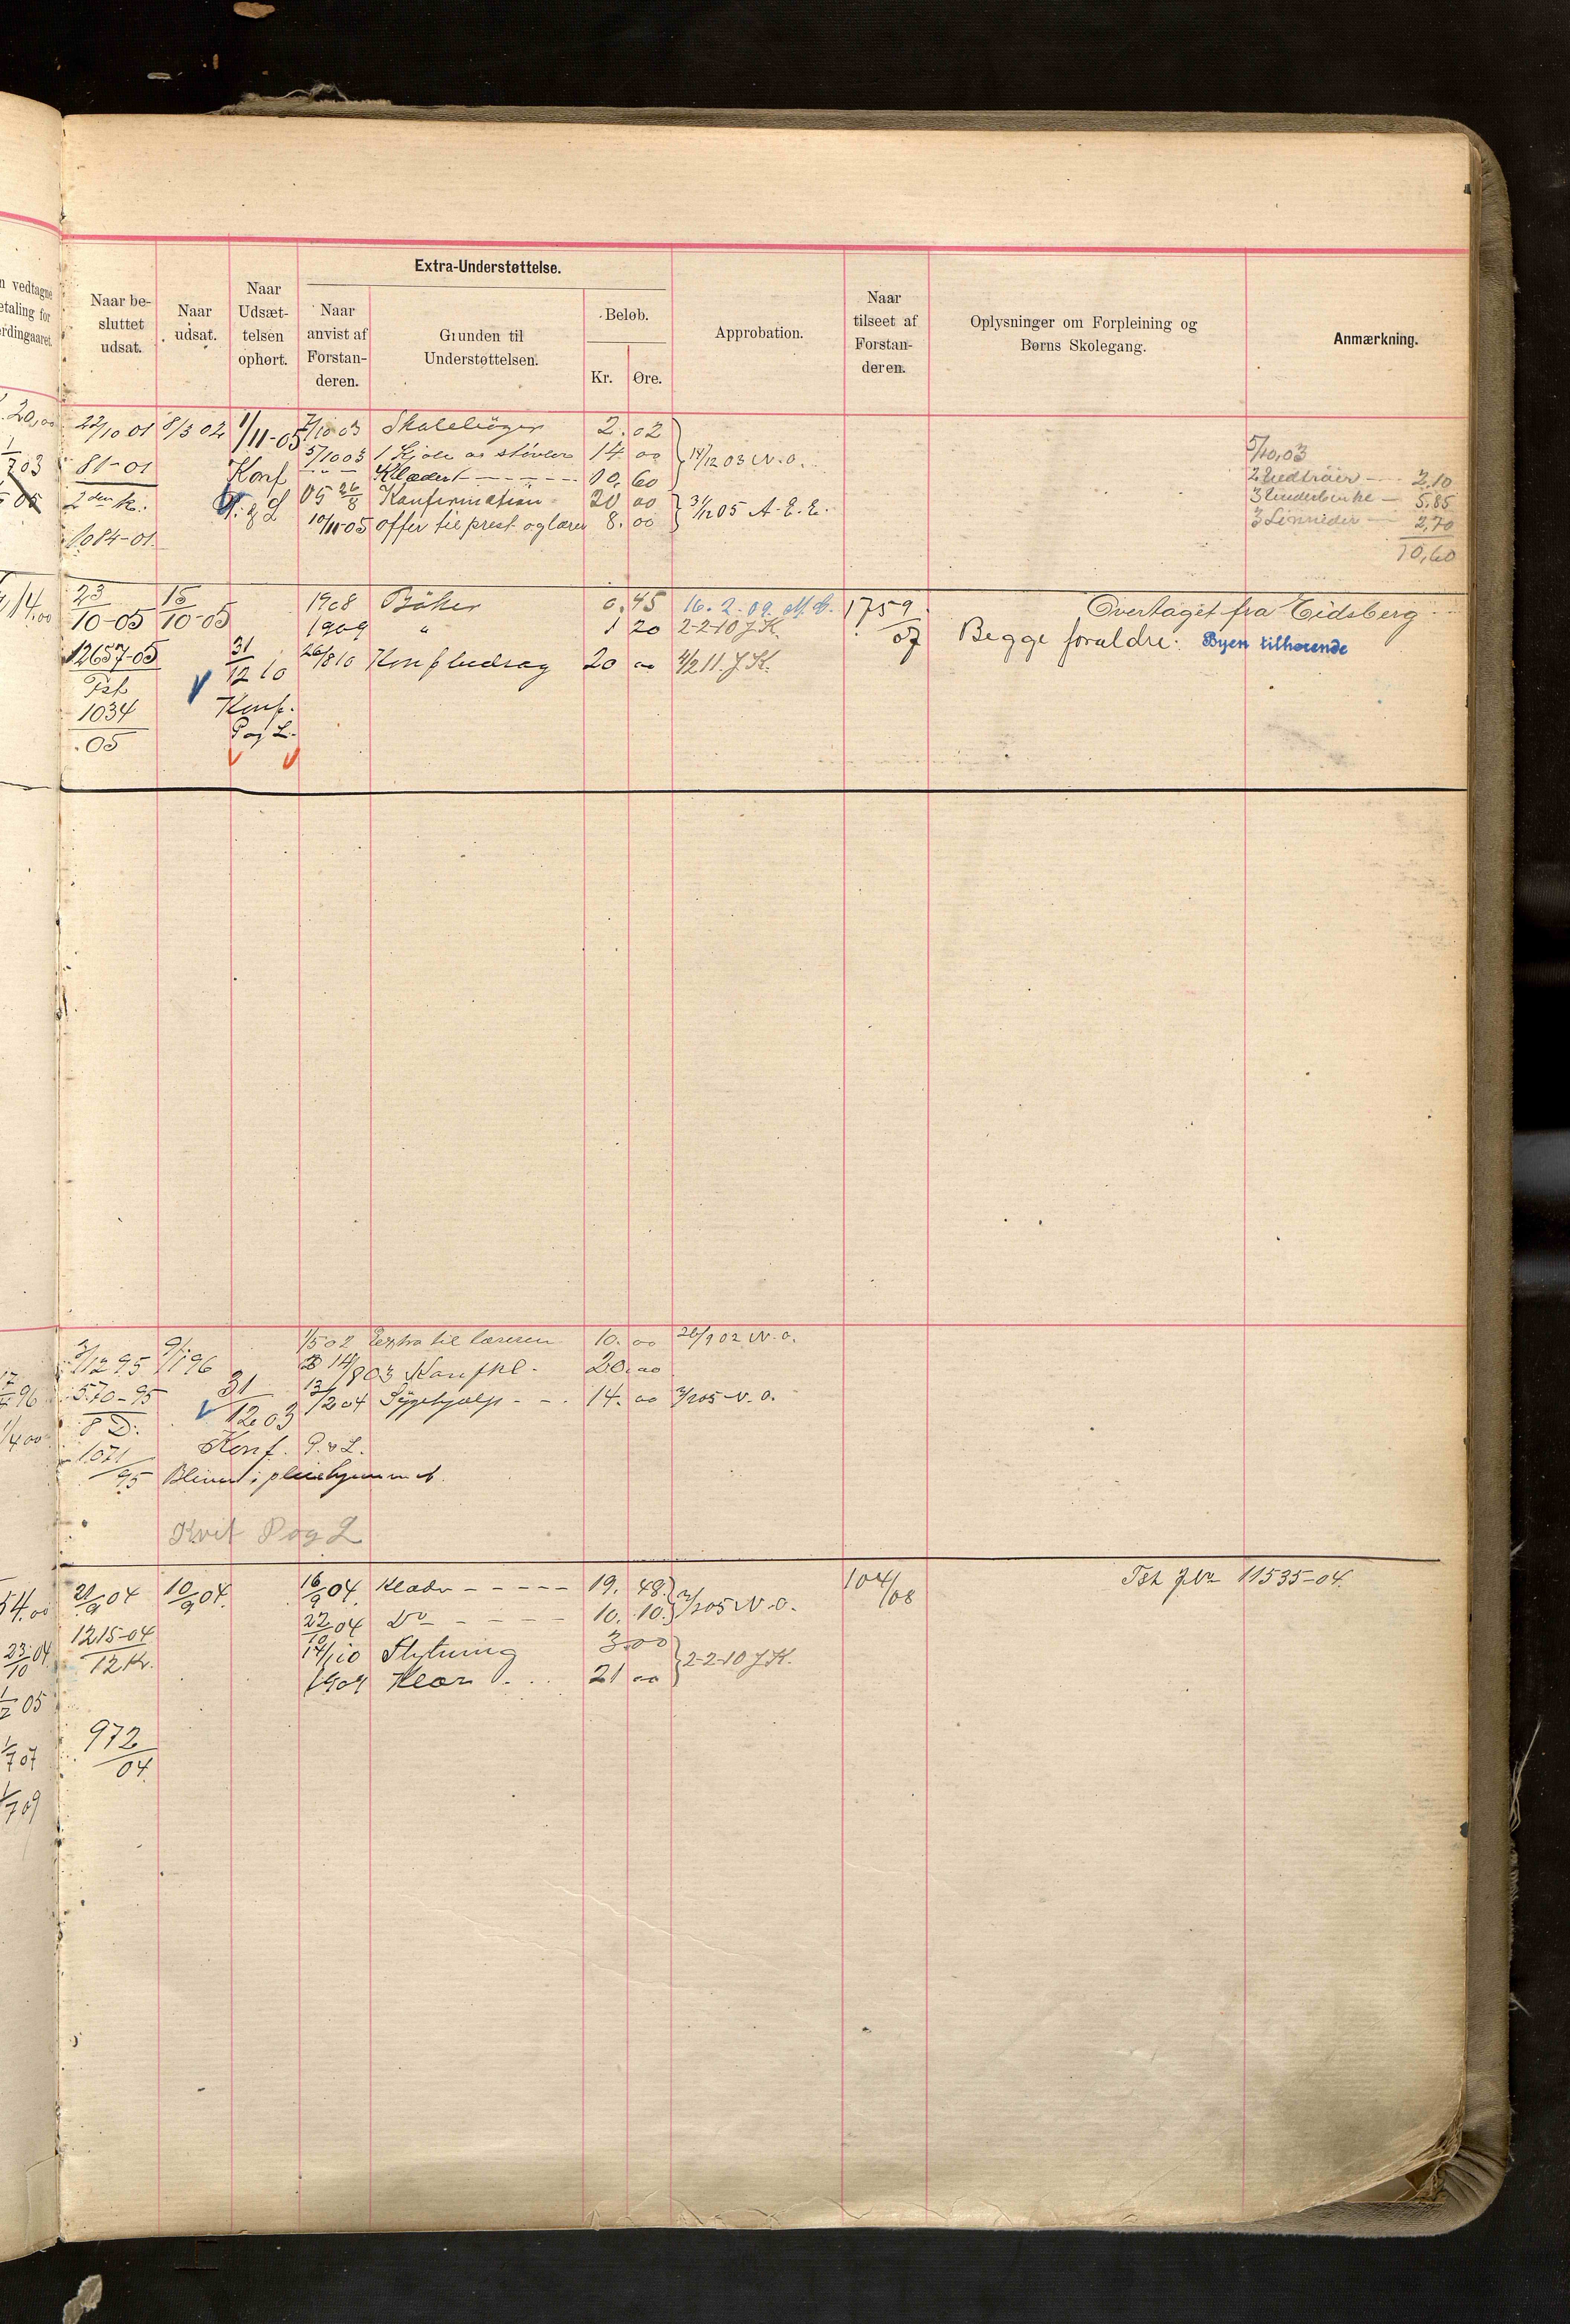 n vedtagne
etaling for
erdingaaret
Naar be-
sluttet
udsat.
Naar
udsat.
Naar
Udsæt-
telsen
ophørt.
Extra-Understøttelse.
Naar
anvist af
Forstan-
deren.
Grunden til
Understøttelsen.
Beløb.
Kr.
Øre.
Approbation.
Naar
tilseet af
Forstan-
deren.
Oplysninger om Forpleining og
Børns Skolegang.
Anmærkning.
20,00
22/10 01 8/3 02 1/11-05 7/10 03 Skolebøger 2. 02
81-01 5/10 03 1 Kjole og støvler 14 00 } 14/12 03 N. O.
Konf Klæder 10. 60
2den k. P. & L 05 26/8 Konfirmation 20 00
1084-01 10/11-05 offer til prest og lærer 8. 00 } 31/12 05 A. E. E.
5/10,03
2,10
5,85
3 Linneder 2,70
10,60
14,00
23/10-05 15/10-05 1908 Bøker 0. 45 16. 2. 09. 1759/07 Overtaget fra Eidsberg
1909 " 1 20 2-2-10 J K. Begge foraldre: Byen tilhørende
12657-05 31/12 10 26/8 10 Konfbidrag 20 00 4/2 11. J. K.
Tsf
1034
05
Konf.
P og L.
3/12 95 9/1 96 1/5 02 Extra til læreren 10. 00 26/9 02 N. O.
14/8 03 Konfkl. 20. 00
570-95 31/12 03 13/12 04 Sygehjælp 14. 00 2/2 05 N. O.
8 D.
1071/95 Konf. P. & L.
Bliver i pleiehjemmet.
Kvit P og L
54.00
21/9 04 10/9 04. 16/9 04. Klæder 19. 48. } 2/2 05 N. O. 104/08 Tsk J No 11535-04.
22/10 04 Do 10. 10.
1215-04 14/1 10 Flytning 3.00 } 2-2-10 J K.
12 Kr. 1909 Klær 21 00
23/10 04
1/2 05
972/04
1/7 07
1/7 09